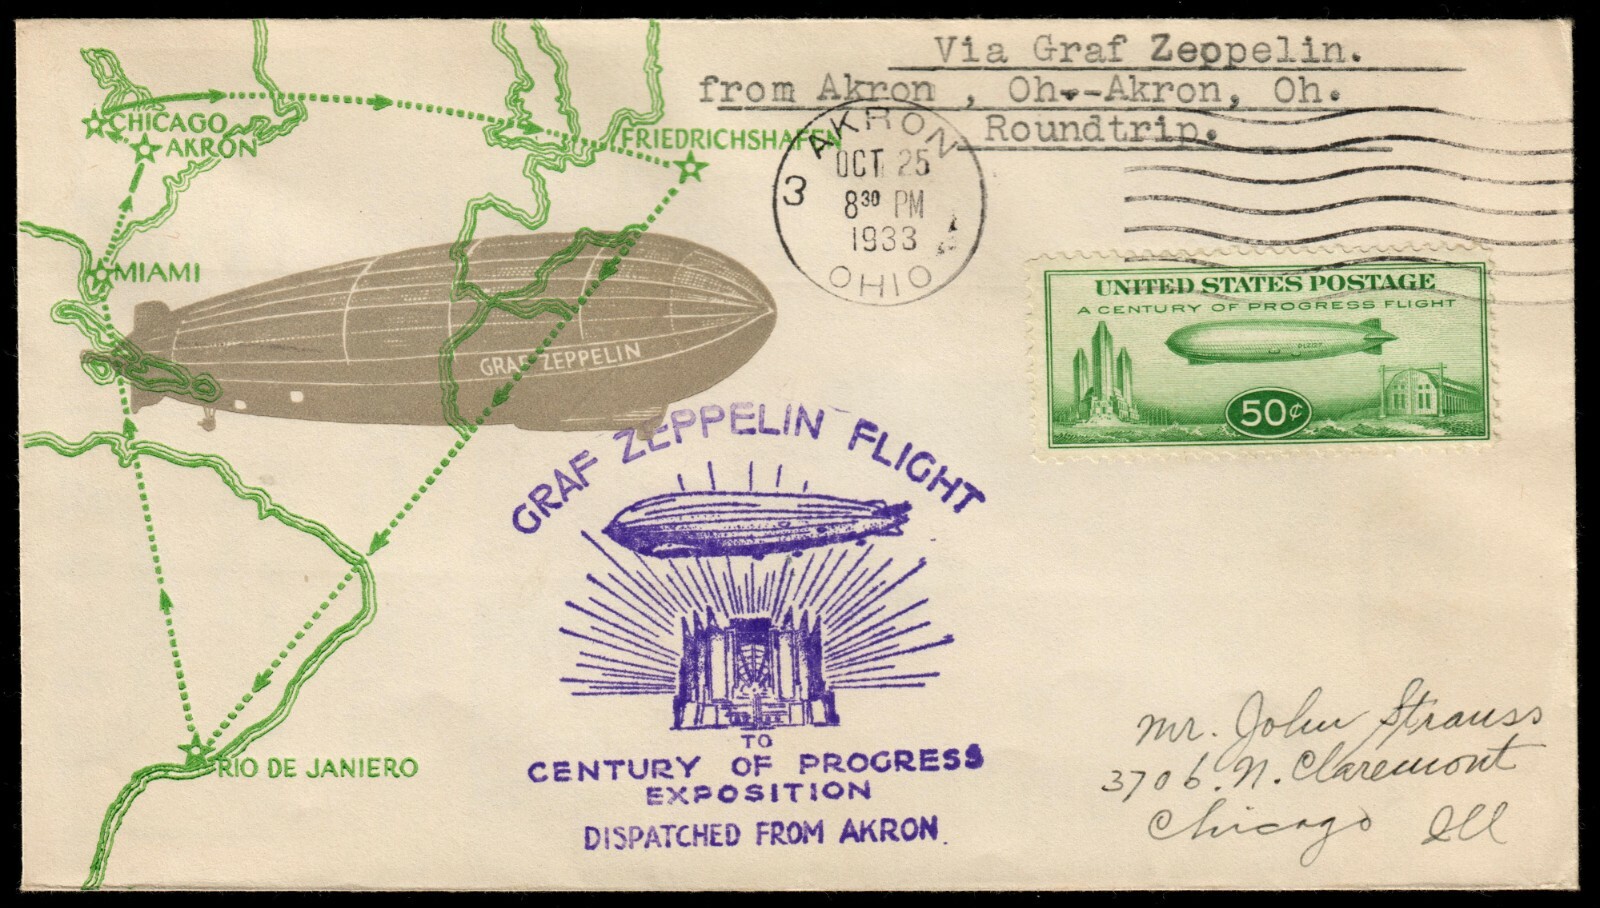 Via Graf Zeppelin.
from Akron , Oh.--Akron, Oh.
Roundtrip.
CHICAGO
AKRON
FRIEDRICHSHAFEN
MIAMI
RIO DE JANIERO
GRAF ZEPPELIN
AKRON
OCT 25
3
8 30 PM
1933
OHIO
UNITED STATES POSTAGE
A CENTURY OF PROGRESS FLIGHT
50¢
GRAF ZEPPELIN FLIGHT
TO
CENTURY OF PROGRESS
EXPOSITION
DISPATCHED FROM AKRON.
Mr. John Strauss
3706. N. Claremont
Chicago Ill